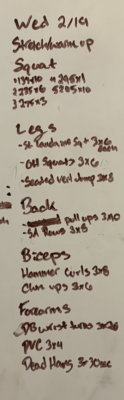 Wed 2/19
Stretch/warm up
Squat
135x10 295x1
225x6 5205x10
275x3
Legs
- St. Squat + 3x6
each
- OH Squats 3x6
- Seated Vert Jump 3x8
Back
pull ups 3x10
- SA Rows 3x8
Biceps
Hammer Curls 3x8
Chin ups 3x6
Forearms
DB wrist 3x20
PVC 3x4
Dead Hang 3x30sec